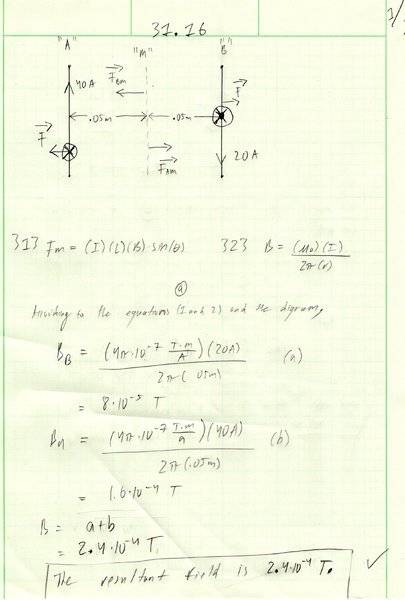 1/
31.16
"A" "M" "B"
40A F Bm F
.05m .05m
F
F Am 20A
313 Fm = (I)(L)(B) · sin(θ) 323 B = (μ₀)(I) / 2π(r)
(a)
According to the equations (1 and 2) and the digram,
B_B = (4π·10⁻⁷ T·m/A)(20A) / 2π(.05m) (a)
= 8·10⁻⁵ T
= (4π·10⁻⁷ T·m/a)(40A) / 2π(.05m) (b)
= 1.6·10⁻⁴ T
B = a+b
= 2.4·10⁻⁴ T.
The resultant field is 2.4·10⁻⁴ T. ✓